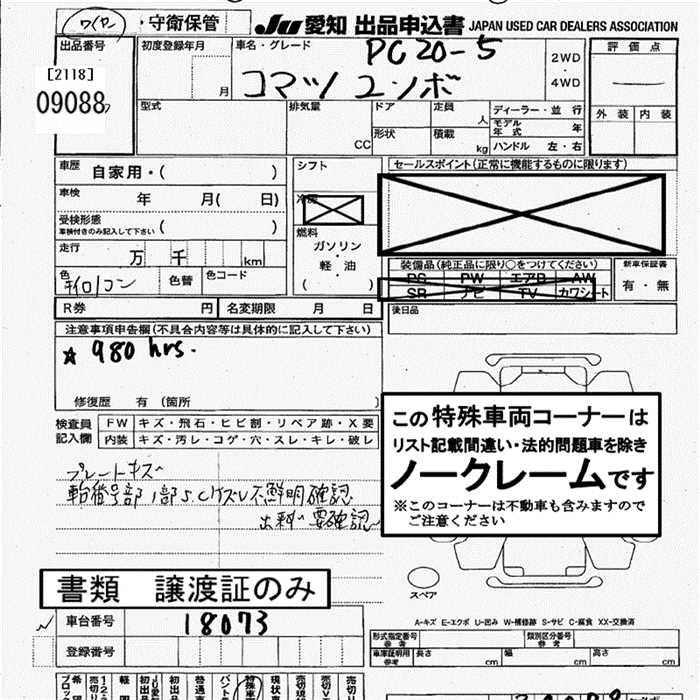 ワイヤ ・守衛保管
JU 愛知 出品申込書 JAPAN USED CAR DEALERS ASSOCIATION
出品番号
[2118]
09088
初度登録年月
月
車名・グレード
PC20-5
コマツ ユンボ
2WD
・
4WD
評価点
外装 内装
型式
排気量
CC
ドア
形状
定員
人
積載
kg
ディーラー・並行
モデル年式 年
ハンドル 左・右
車歴 自家用・( )
車検 年 月( 日)
受検形態
車検付きのみ記入して下さい ( )
走行 万 千 km
色
色替
色コード
シフト
冷房
燃料
ガソリン
・
軽・油
( )
セールスポイント(正常に機能するものに限ります)
装備品(純正品に限り○をつけてください)
PS PW エアB AW
SR ナビ TV カワシート
新車保証書
有・無
R券 円 名変期限 月 日
後日品
注意事項申告欄(不具合内容等は具体的に記入して下さい)
☆ 980 hrs.
修復歴 有 (箇所 )
検査員記入欄
FW キズ・飛石・ヒビ割・リペア跡・X要
内装 キズ・汚レ・コゲ・穴・スレ・キレ・破レ
プレートキズ
不鮮明確認
要確認
この特殊車両コーナーは
リスト記載間違い・法的問題車を除き
ノークレームです
※このコーナーは不動車も含みますので
ご注意ください
スペア
書類 譲渡証のみ
車台番号 18073
登録番号
A-キズ E-エクボ U-凹み W-補修跡 S-サビ C-腐食 XX-交換済
形式指定番号
参考
類別区分番号
参考
車庫証明用
参考
長さ cm 幅 cm 高さ cm